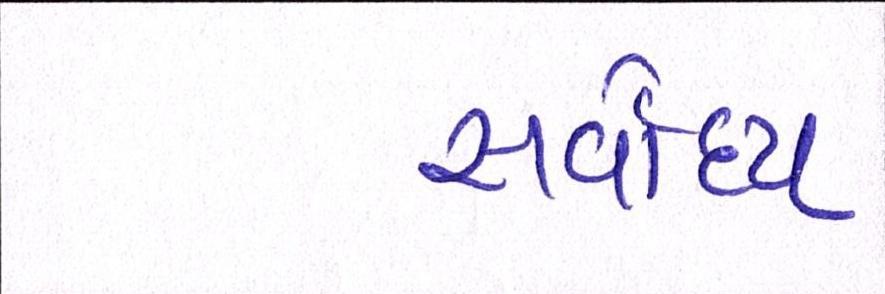 સર્વોદય